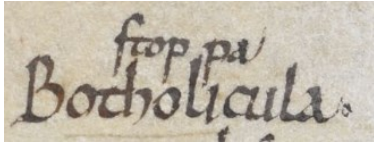 stop pa
Bothonicula.